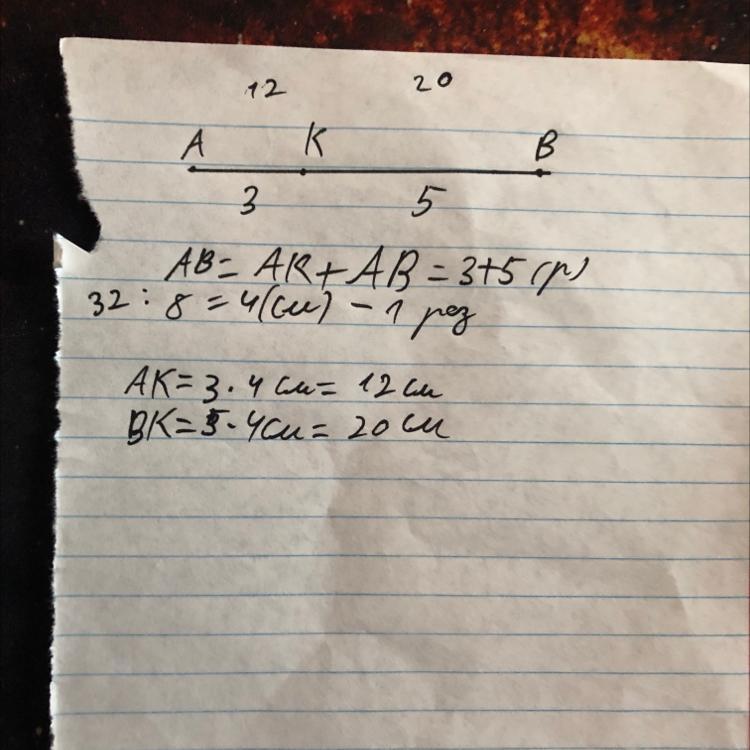 12 20
A K B
3 5
AB = AK + AB = 3+5 (р)
32 : 8 = 4(см) - 1 рез
AK = 3 · 4 см = 12 см
BK = 5 · 4см = 20 см